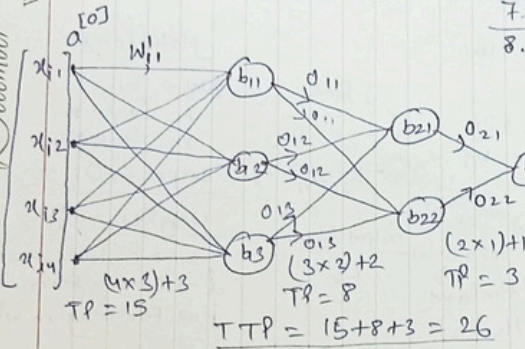 a[0]
7.
8.
W¹₁₁
xi1
xi2
xi3
xi4
b11
b12
b13
O11
O11
O12
O12
O13
O13
b21
b22
O21
O22
(4x3)+3
TP = 15
(3x2)+2
TP = 8
(2x1)+1
TP = 3
TTP = 15+8+3 = 26